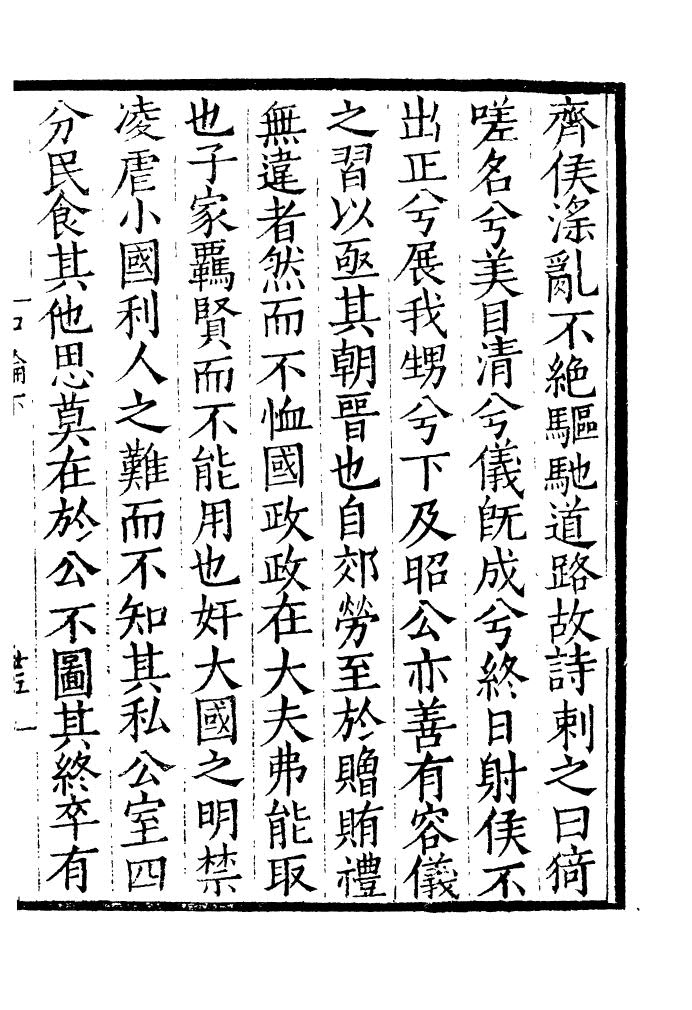 齊侯滛亂不絶驅馳道路故詩刺之曰猗
嗟名兮美目清兮儀旣成兮終日射侯不
出正兮展我甥兮下及昭公亦善有容儀
之習以亟其朝晉也自郊勞至於贈賄禮
無違者然而不恤國政政在大夫弗能取
也子家羈賢而不能用也奸大國之明禁
凌虐小國利人之難而不知其私公室四
分民食其他思莫在於公不圖其終卒有